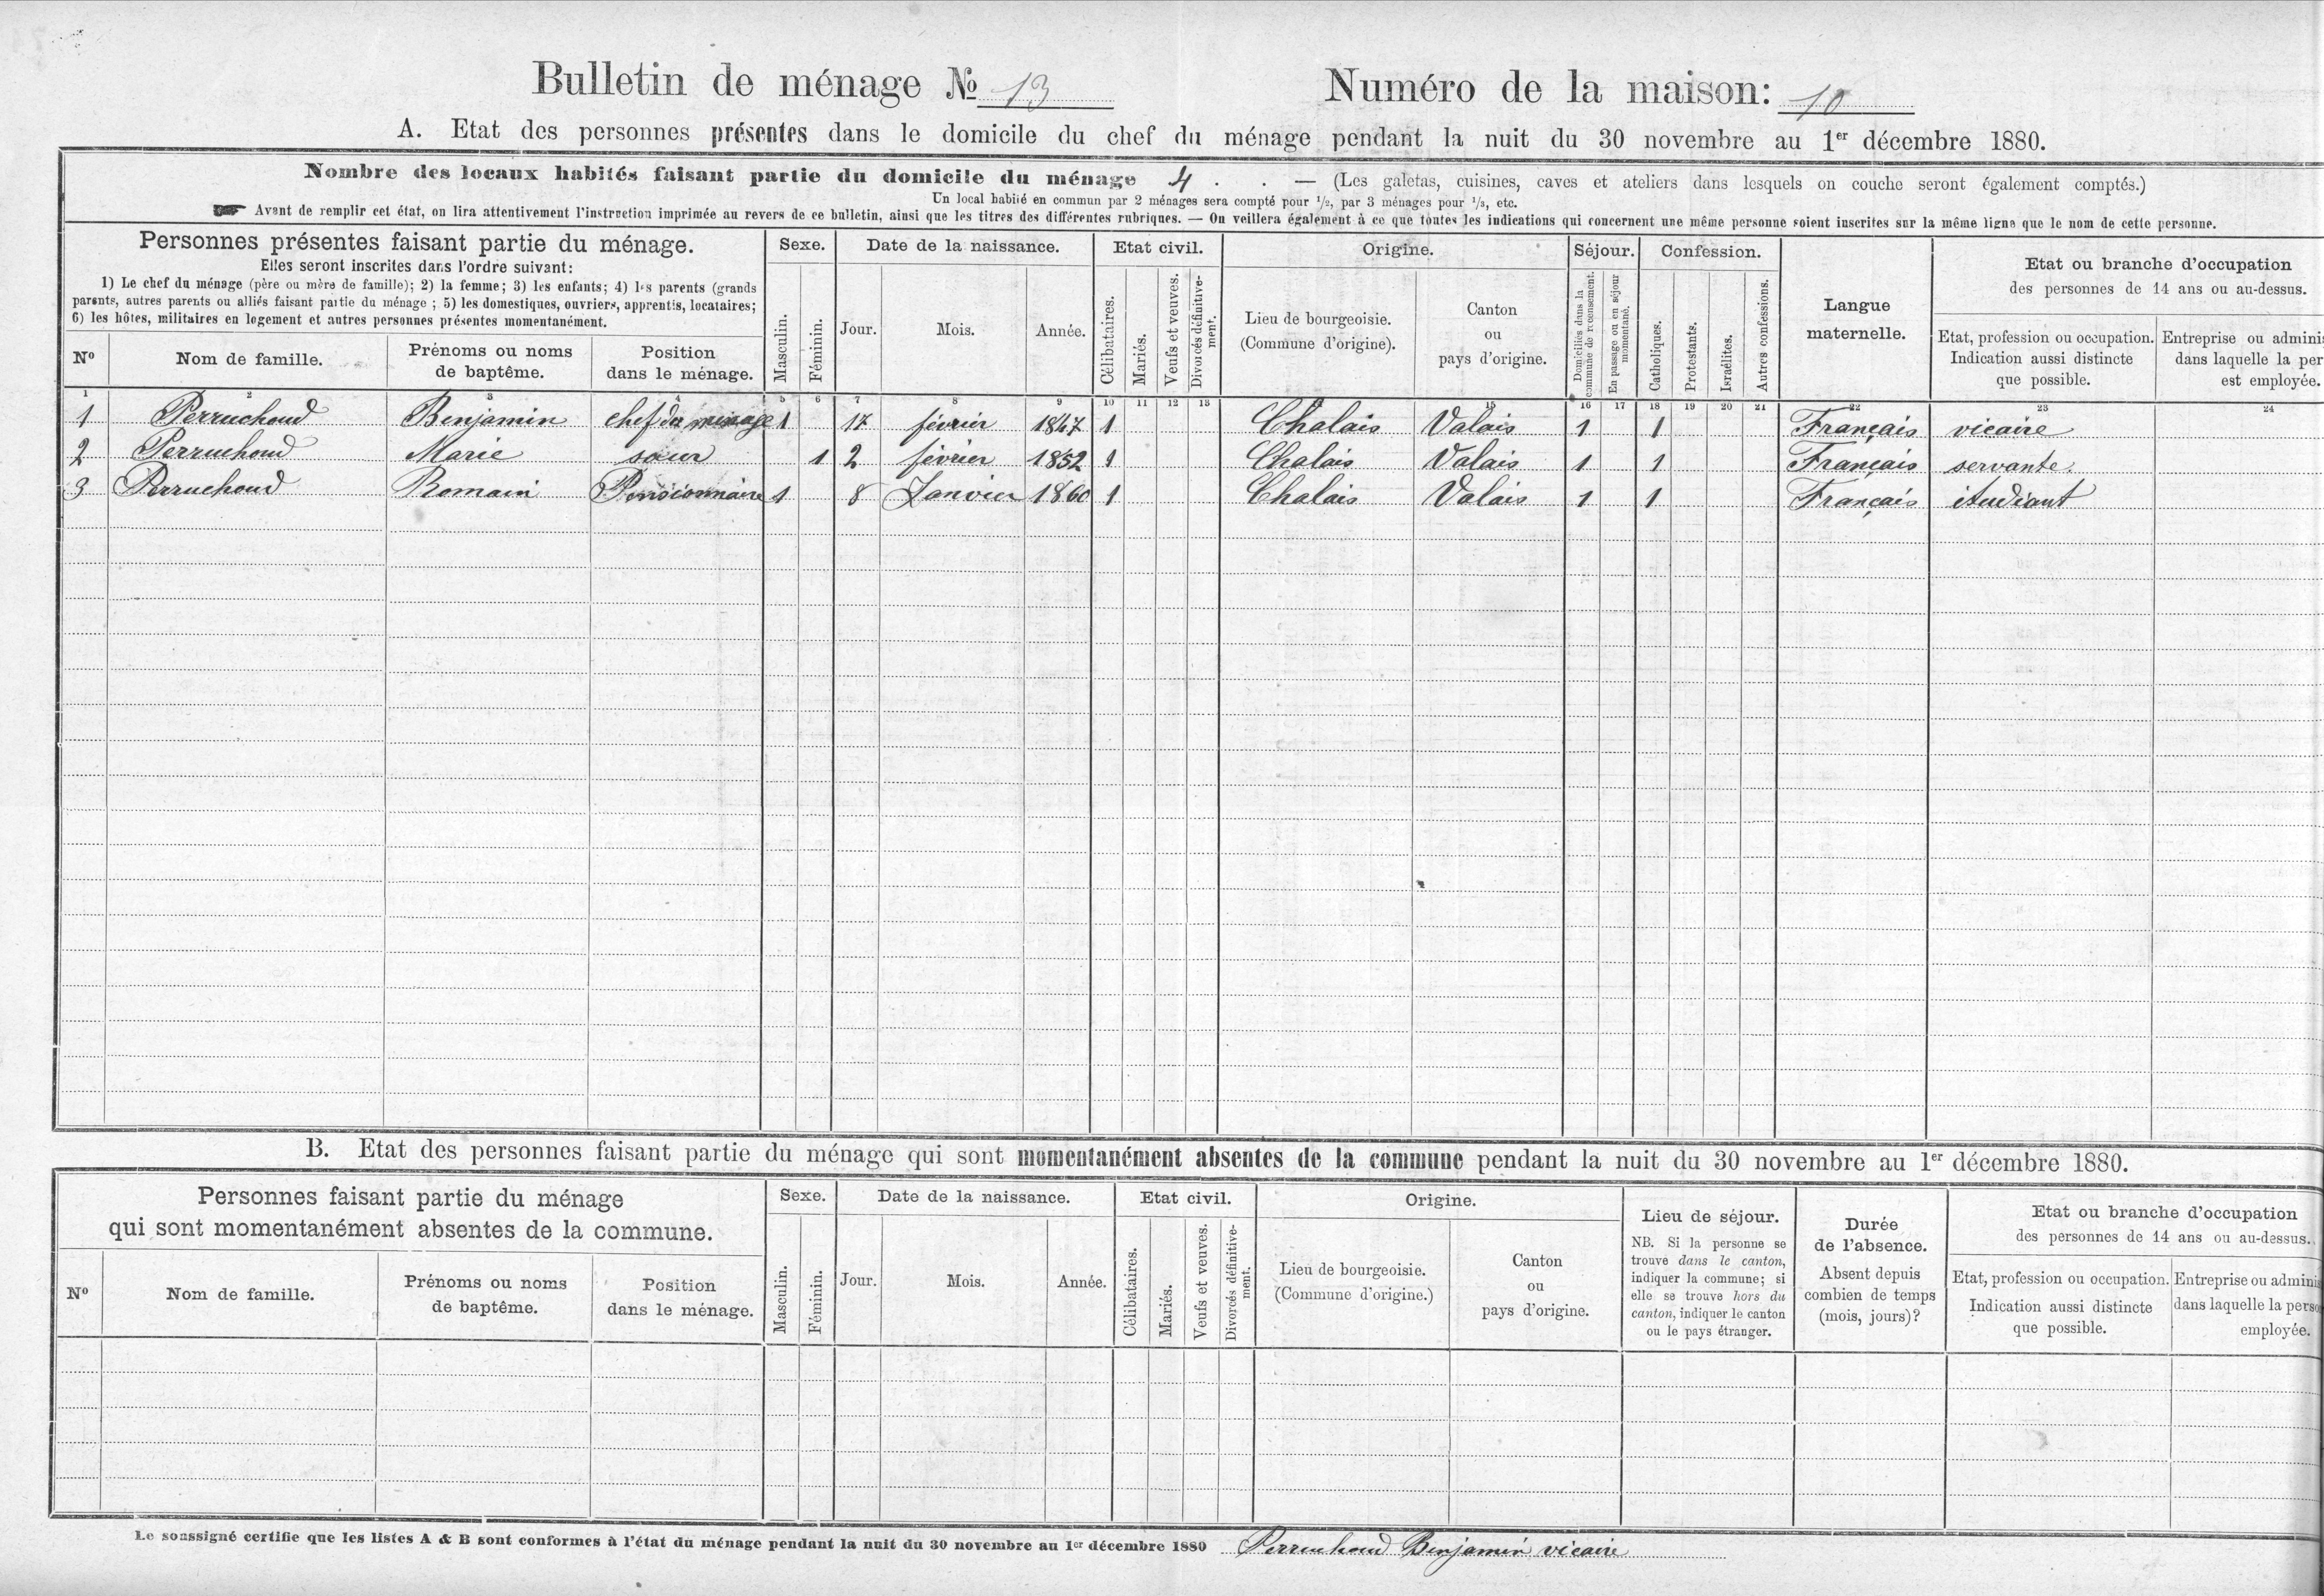 Bulletin de ménage № 13
Numéro de la maison: 10
A. Etat des personnes présentes dans le domicile du chef du ménage pendant la nuit du 30 novembre au 1er décembre 1880.
Nombre des locaux habités faisant partie du domicile du ménage 4 . . — (Les galetas, cuisines, caves et ateliers dans lesquels on couche seront également comptés.)
Un local habité en commun par 2 ménages sera compté pour 1/2, par 3 ménages pour 1/3, etc.
☛ Avant de remplir cet état, on lira attentivement l'instruction imprimée au revers de ce bulletin, ainsi que les titres des différentes rubriques. — On veillera également à ce que toutes les indications qui concernent une même personne soient inscrites sur la même ligne que le nom de cette personne.
Personnes présentes faisant partie du ménage.
Elles seront inscrites dans l'ordre suivant:
1) Le chef du ménage (père ou mère de famille); 2) la femme; 3) les enfants; 4) les parents (grands
parents, autres parents ou alliés faisant partie du ménage ; 5) les domestiques, ouvriers, apprentis, locataires;
6) les hôtes, militaires en logement et autres personnes présentes momentanément.
Nº
Nom de famille.
Prénoms ou noms
de baptême.
Position
dans le ménage.
Sexe.
Masculin.
Féminin.
Date de la naissance.
Jour.
Mois.
Année.
Etat civil.
Célibataires.
Mariés.
Veufs et veuves.
Divorcés définitive-
ment.
Origine.
Lieu de bourgeoisie.
(Commune d'origine).
Canton
ou
pays d'origine.
Séjour.
Domiciliés dans la
commune de recensement.
En passage ou en séjour
momentané.
Confession.
Catholiques.
Protestants.
Israélites.
Autres confessions.
Langue
maternelle.
Etat ou branche d'occupation
des personnes de 14 ans ou au-dessus.
Etat, profession ou occupation.
Indication aussi distincte
que possible.
Entreprise ou admini
dans laquelle la per
est employée.
1 2 3 4 5 6 7 8 9 10 11 12 13 15 16 17 18 19 20 21 22 23 24
1 Perruchoud Benjamin chef du ménage 1 17 février 1847 1 Chalais Valais 1 1 Français vicaire
2 Perruchoud Marie sœur 1 2 février 1852 1 Chalais Valais 1 1 Français servante.
3 Perruchoud Romain Pensionnaire 1 8 Janvier 1860 1 Chalais Valais 1 1 Français étudiant
B. Etat des personnes faisant partie du ménage qui sont momentanément absentes de la commune pendant la nuit du 30 novembre au 1er décembre 1880.
Personnes faisant partie du ménage
qui sont momentanément absentes de la commune.
Nº
Nom de famille.
Prénoms ou noms
de baptême.
Position
dans le ménage.
Sexe.
Masculin.
Féminin.
Date de la naissance.
Jour.
Mois.
Année.
Etat civil.
Célibataires.
Mariés.
Veufs et veuves.
Divorcés définitive-
ment.
Origine.
Lieu de bourgeoisie.
(Commune d'origine.)
Canton
ou
pays d'origine.
Lieu de séjour.
NB. Si la personne se
trouve dans le canton,
indiquer la commune; si
elle se trouve hors du
canton, indiquer le canton
ou le pays étranger.
Durée
de l'absence.
Absent depuis
combien de temps
(mois, jours)?
Etat ou branche d'occupation
des personnes de 14 ans ou au-dessus.
Etat, profession ou occupation.
Indication aussi distincte
que possible.
Entreprise ou admini
dans laquelle la perso
employée.
Le soussigné certifie que les listes A & B sont conformes à l'état du ménage pendant la nuit du 30 novembre au 1er décembre 1880 Perruchoud Benjamin vicaire